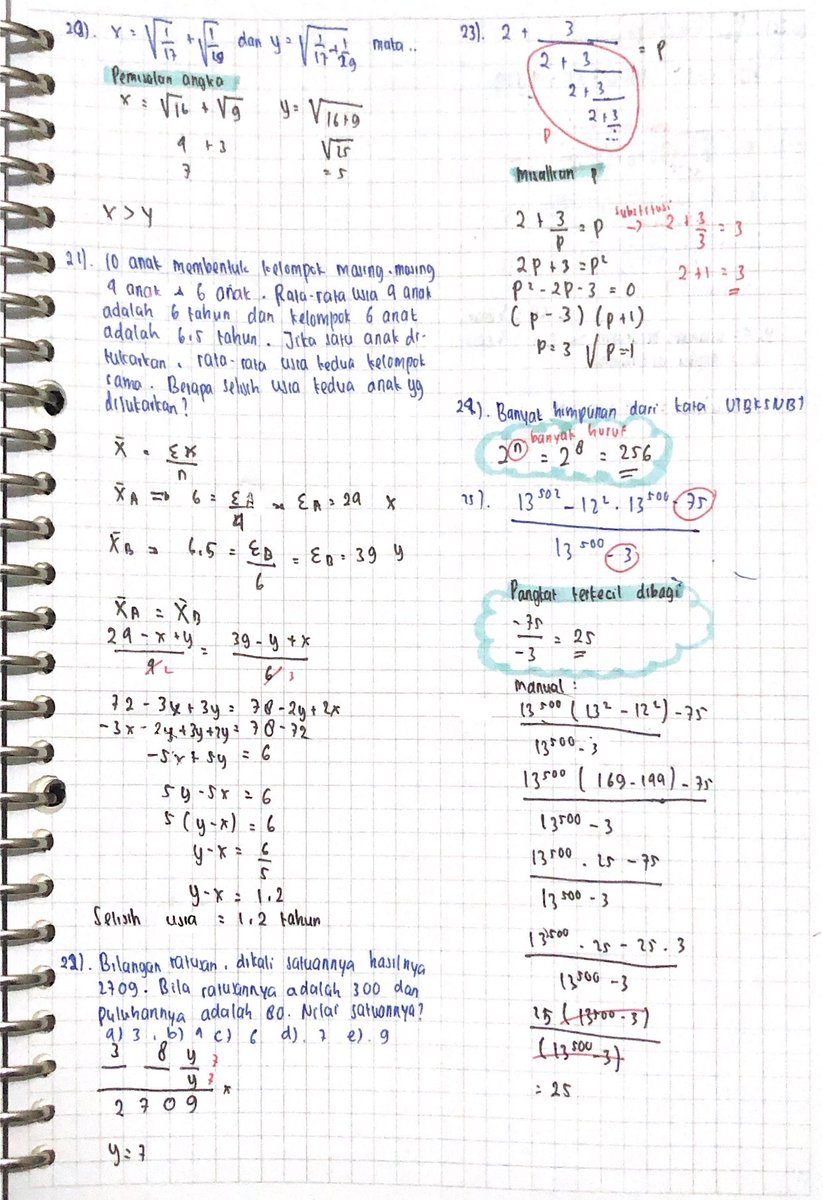 20). x = √1/17 + √1/19 dan y = √1/17 + 1/29 maka ..
Pemisalan angka
x = √16 + √9   y = √16+9
4 + 3   √25
7   = 5
x > y
21). 10 anak membentuk kelompok masing-masing
4 anak & 6 anak. Rata-rata usia 4 anak
adalah 6 tahun dan kelompok 6 anak
adalah 6.5 tahun. Jika satu anak di-
tukarkan, rata-rata usia kedua kelompok
sama. Berapa selisih usia kedua anak yg
ditukarkan?
x̄ = Σx/n
x̄A => 6 = ΣA/4 = ΣA = 24   x
x̄B = 6.5 = ΣB/6 = ΣB = 39   y
x̄A = x̄B
24 - x + y / 4 2 = 39 - y + x / 6 3
72 - 3x + 3y = 78 - 2y + 2x
-3x - 2x + 3y + 2y = 78 - 72
-5x + 5y = 6
5y - 5x = 6
5(y-x) = 6
y-x = 6/5
y-x = 1.2
Selisih usia = 1.2 tahun
22). Bilangan ratusan, dikali satuannya hasilnya
2709. Bila ratusannya adalah 300 dan
puluhannya adalah 80. Nilai satuannya?
a) 3 . b) 4 c) 6 d). 7 e). 9
3 8 y 7
y 7 x
2 7 0 9
y = 7
23). 2 + 3/(2 + 3/(2 + 3/(2 + 3/...))) = P
P
Misalkan P
2 + 3/p = p substitusi → 2 + 3/3 = 3
2p + 3 = p²   2 + 1 = 3
p² - 2p - 3 = 0
(p - 3) (p+1)
p = 3 √ p = 1
24). Banyak himpunan dari kata UTBKSNBT
banyak huruf
2ⁿ = 2⁸ = 256
25). 13⁵⁰² - 12² . 13⁵⁰⁰ - 75 / 13⁵⁰⁰ - 3
Pangkat terkecil dibagi
-75/-3 = 25
manual :
13⁵⁰⁰ (13² - 12²) - 75 / 13⁵⁰⁰ - 3
13⁵⁰⁰ (169 - 144) - 75 / 13⁵⁰⁰ - 3
13⁵⁰⁰ . 25 - 75 / 13⁵⁰⁰ - 3
13⁵⁰⁰ . 25 - 25 . 3 / 13⁵⁰⁰ - 3
25 (13⁵⁰⁰ - 3) / (13⁵⁰⁰ - 3)
= 25